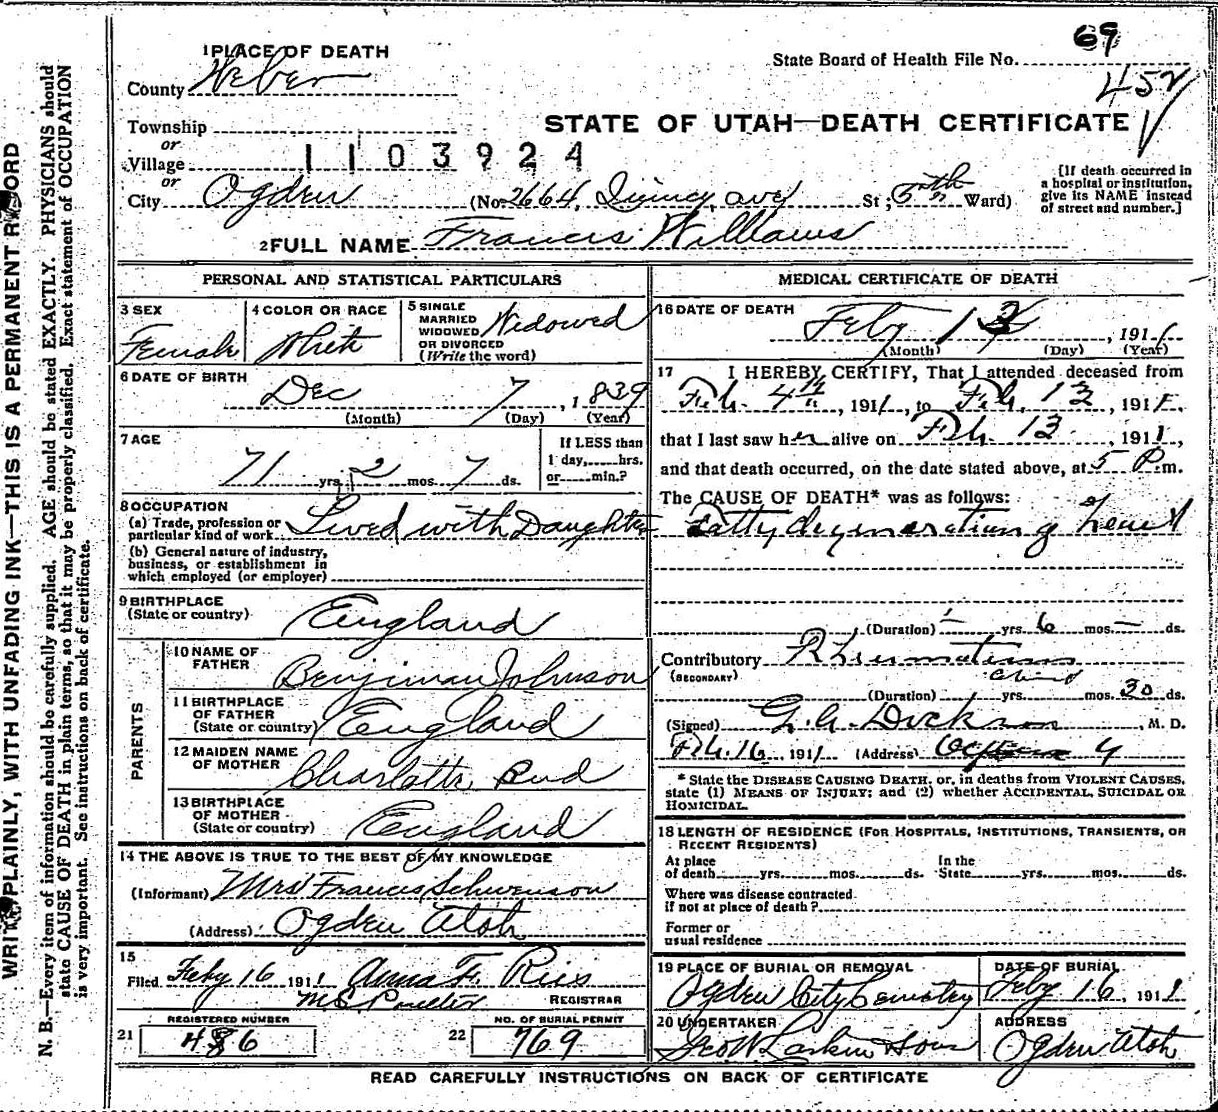 WRITE PLAINLY, WITH UNFADING INK—THIS IS A PERMANENT RECORD
N. B.—Every item of information should be carefully supplied. AGE should be stated EXACTLY. PHYSICIANS should
state CAUSE OF DEATH in plain terms, so that it may be properly classified. Exact statement of OCCUPATION
is very important. See instructions on back of certificate.
69
1 PLACE OF DEATH
State Board of Health File No.
County Weber
452
Township
STATE OF UTAH—DEATH CERTIFICATE
or
Village
1103924
or
City Ogden (No 2664, Quincy ave St; 5th Ward)
[If death occurred in
a hospital or institution,
give its NAME instead
of street and number.]
2 FULL NAME Francis Williams
PERSONAL AND STATISTICAL PARTICULARS
3 SEX
Female
4 COLOR OR RACE
White
5 SINGLE
MARRIED
WIDOWED
OR DIVORCED
(Write the word)
Widowed
6 DATE OF BIRTH
Dec 7, 1839
(Month) (Day) (Year)
7 AGE
71 yrs. 2 mos. 7 ds.
If LESS than
1 day,......hrs.
or......min.?
8 OCCUPATION
(a) Trade, profession or
particular kind of work Lived with Daughter
(b) General nature of industry,
business, or establishment in
which employed (or employer)
9 BIRTHPLACE
(State or country)
England
PARENTS
10 NAME OF
FATHER
Benjiman Johnson
11 BIRTHPLACE
OF FATHER
(State or country)
England
12 MAIDEN NAME
OF MOTHER
Charlotte
13 BIRTHPLACE
OF MOTHER
(State or country)
England
14 THE ABOVE IS TRUE TO THE BEST OF MY KNOWLEDGE
(Informant) Mrs Francis
(Address) Ogden Utah
15
Filed Feby 16 1911 Anna F. Ries
REGISTRAR
21 REGISTERED NUMBER
486
22 NO. OF BURIAL PERMIT
769
MEDICAL CERTIFICATE OF DEATH
16 DATE OF DEATH
Feby 13, 1911
(Month) (Day) (Year)
17 I HEREBY CERTIFY, That I attended deceased from
Feb. 4th, 1911, to Feb. 13, 1911,
that I last saw her alive on Feb 13, 1911,
and that death occurred, on the date stated above, at 5 P.m.
The CAUSE OF DEATH* was as follows:
Fatty degeneration of heart
(Duration) — yrs. 6 mos. — ds.
Contributory Rheumatism
(SECONDARY)
(Duration) yrs. mos. 30 ds.
(Signed) Dickson, M. D.
Feb. 16, 1911 (Address)
* State the DISEASE CAUSING DEATH, or, in deaths from VIOLENT CAUSES,
state (1) MEANS OF INJURY; and (2) whether ACCIDENTAL, SUICIDAL OR
HOMICIDAL.
18 LENGTH OF RESIDENCE (FOR HOSPITALS, INSTITUTIONS, TRANSIENTS, OR
RECENT RESIDENTS)
At place
of death......yrs......mos......ds.
In the
State......yrs......mos......ds.
Where was disease contracted
if not at place of death?
Former or
usual residence
19 PLACE OF BURIAL OR REMOVAL
Ogden City Cemetery
DATE OF BURIAL
Feby 16, 1911
20 UNDERTAKER
Geo W Larkin Sons
ADDRESS
Ogden Utah
READ CAREFULLY INSTRUCTIONS ON BACK OF CERTIFICATE